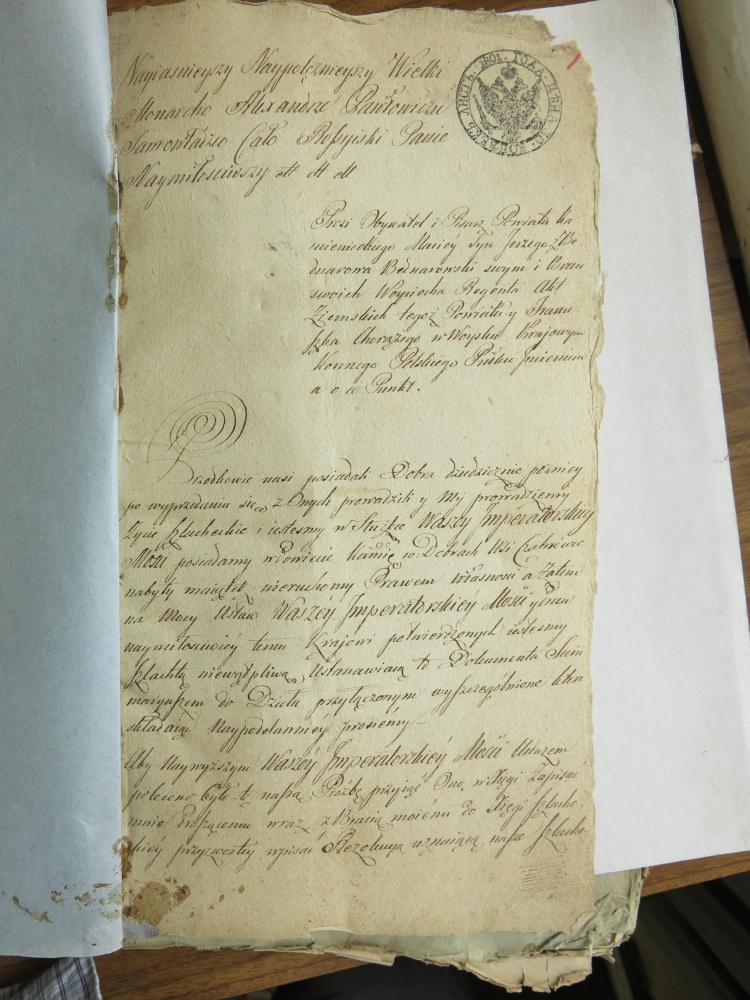 Nayiasnieyszy Naypotężnieyszy Wielki
Monarcho Alexandrze Pawłowiczu
Samowładźco Cało Rossyiski Panie
Naymiłosciwszy
ЛИСТЪ. 1801. ГОДА. ЦѢНА
Prosi Obywatel i Pisarz Powiatu Ka
mienieckiego Maciéy Syn Jerzego z Be
dnarowa Bednarowski swym i Braci
swoich Woyciecha Regenta Akt
Ziemskich tegoż Powiatu y Franci
szka Chorążego w Woysku Kraiowym
Konnego Polskiego Pułku Jmieniem
a o co Punkt.
Przodkowie nasi posiadali Dobra dziedziczne pózniéy
po wyprzedaniu się z Onych prowadzili y My prowadziemy
Życie Szlacheckie i iestesmy w Służbie Waszéy Jmperatorskiéy
Mości posiadamy w Powiecie Kamie: w Dobrach Wsi
nabyty maiątek nieruchomy Prawem własności a Zatem
na Mocy Ustaw Waszéy Jmperatorskiéy Mości y praw
naymiłosciwiéy temu Kraiowi potwierdzonych iestesmy
Szlachtą niewątpliwą, Ustanawiaią to Dokumenta Sum
maryuszem do Dzieła przyłączonym wyszczególnione które
składaiąc Naypoddanniéy prosiémy
Aby Naywyższym Waszéy Jmperatorskiéy Mości Ukazem
polecono było tę naszą Prozbę przyiąć Oną w Xięgi Zapisać
mnie Proszącemu wraz z Bracią moiémi do Xięgi Szlache
ckiéy przyzwoitéy wpisać Rezolucyą uznaiącą nasze Szlache-